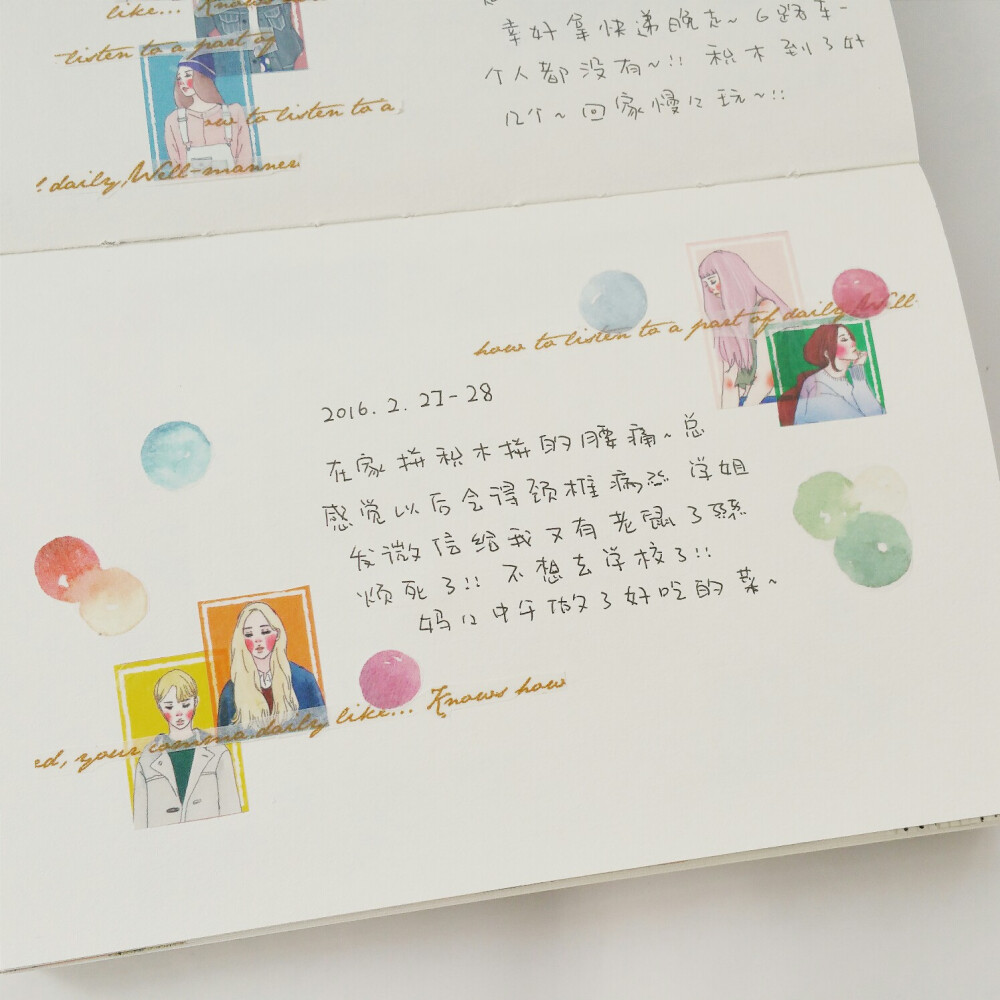 like... Knows
listen to a part of
how to listen to a
daily, Well-manner
幸好拿快递晚走~6路车一
个人都没有~!! 积木到了好
几个~回家慢几玩~!!
how to listen to a part of daily, Well-
2016.2.27-28
在家拼积木拼的腰痛~总
感觉以后会得颈椎病 学姐
发微信给我又有老鼠了
烦死了!! 不想去学校了!!
妈几中午做了好吃的菜~
ed, your comma, daily like... Knows how